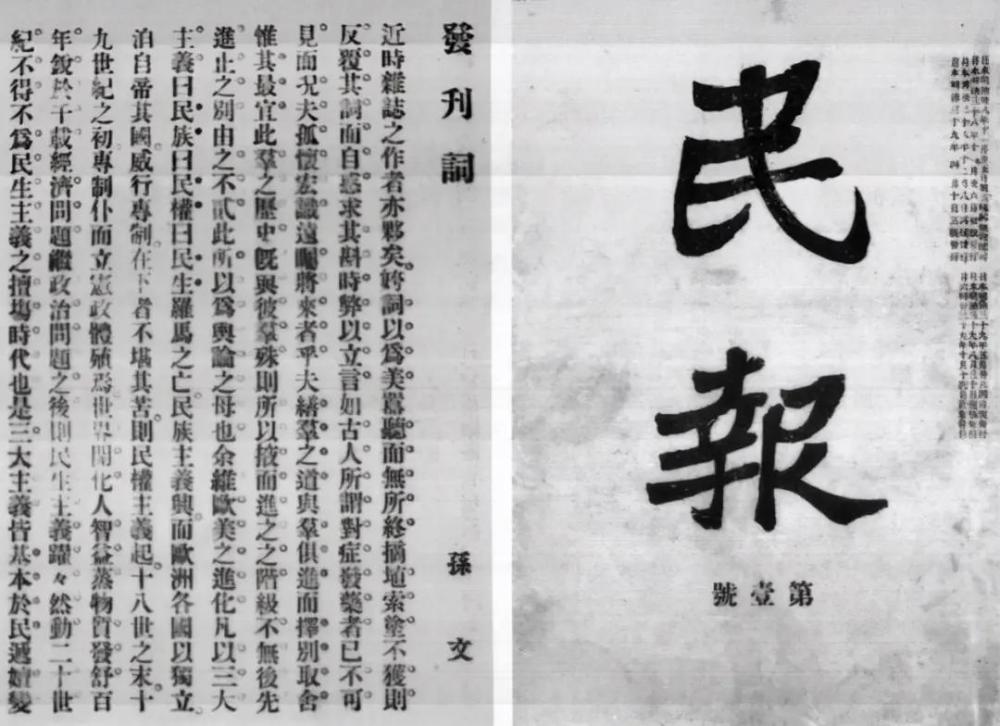 民報
第壹號
發刊詞
孫文
近時雜誌之作者亦夥矣姱詞以爲美囂聽而無所終摘埴索塗不獲則
反覆其詞而自惑求其斟時弊以立言如古人所謂對症發藥者已不可
見而況夫孤懷宏識遠矚將來者乎夫繕羣之道與羣俱進而擇別取舍
惟其最宜此羣之歷史旣與彼羣殊則所以掖而進之之階級不無後先
進止之別由之不貳此所以爲輿論之母也余維歐美之進化凡以三大
主義曰民族曰民權曰民生羅馬之亡民族主義興而歐洲各國以獨立
洎自帝其國威行專制在下者不堪其苦則民權主義起十八世之末十
九世紀之初專制仆而立憲政體殖焉世界開化人智益蒸物質發舒百
年銳於千載經濟問題繼政治問題之後則民生主義躍々然動二十世
紀不得不爲民生主義之擅塲時代也是三大主義皆基本於民遞嬗變